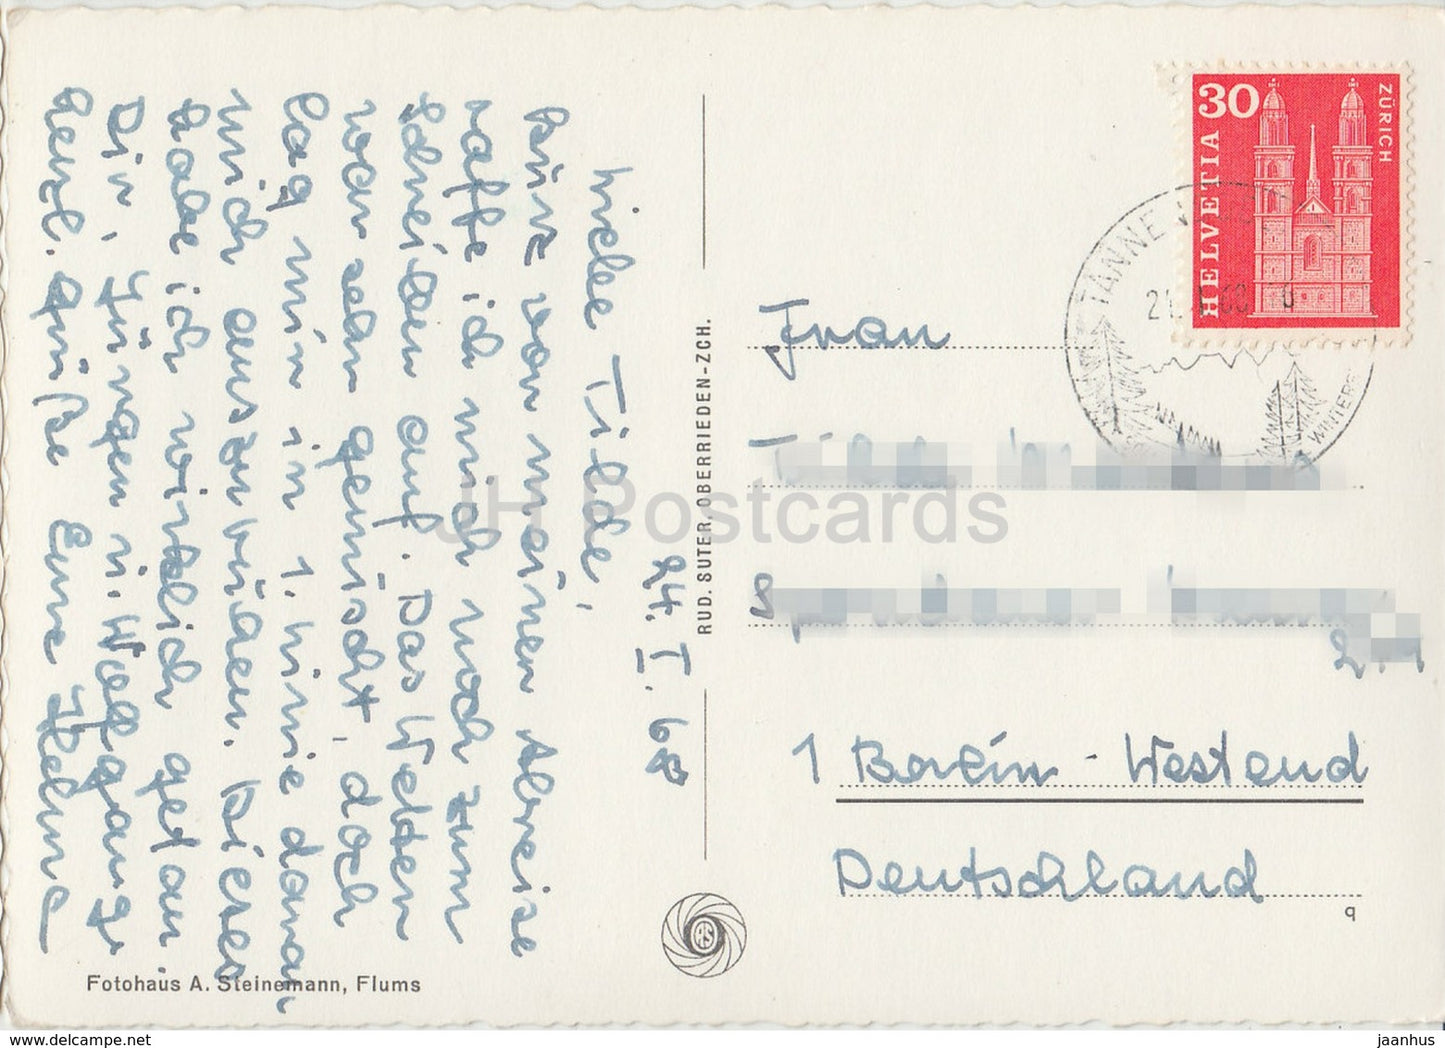 24. I. 68
Liebe Tilde,
Kurz vor meiner Abreise
raffe ich mich noch zum
Schreiben auf. Das Wetter
war sehr gemischt, doch
lag mir in 1. Linie daran
mich auszuruhen. Dieses
habe ich wirklich getan.
Dir, Jürgen u. Wolfgang
Herzl. Grüße Eure Helma
Fotohaus A. Steinemann, Flums
RUD. SUTER, OBERRIEDEN-ZCH.
30
HELVETIA
ZÜRICH
TANNE
WINTER
Frau
1 Berlin - Westend
Deutschland
q
JH Postcards
80.delcampe.net
jaanhus